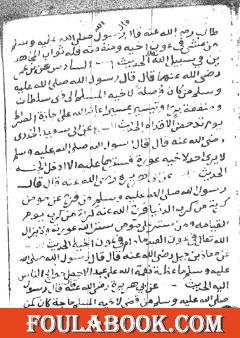 طالب رضي الله عنه قال قال رسول الله صلى الله عليه وسلم
من مشى في عون اخيه ومنفعته فله ثواب المجاهد
ين في سبيل الله الحديث السادس عن بن عمر
رضي الله عنهما قال قال رسول الله صلى الله عليه
وسلم من كان وصلة لاخيه المسلم الى ذي سلطان
ومنفعة بر او تيسير عسير اعانه الله على جازة الصراط
يوم تدحض الاقدام الحديث عن ابي سعيد الخدري
رضي الله عنه قال قال رسول الله صلى الله عليه وسلم
لا يرى احد لاخيه عورة فسترها عليه الا ادخل الجنة
الحديث عن ابي هريرة رضي الله عنه قال قال
رسول الله صلى الله عليه وسلم من فرج عن مومن
كربة من كرب الدنيا فرج الله عنه كربة من كرب يوم
القيامة ومن ستر على مومن ستر الله عورته ولا يزال
الله تعالى في عون العبد ما دام في عون اخيه الحديث
عن معاذ بن جبل رضي الله عنه قال قال رسول الله صلى الله
عليه وسلم ما عظمة نعمة الله على عبد الا حوايج الناس
اليه الحديث عن ابي هريرة رضي الله عنه قال رسول
صلى الله عليه وسلم من قضى لاخيه المسلم حاجة كان كمن
FOULABOOK.COM